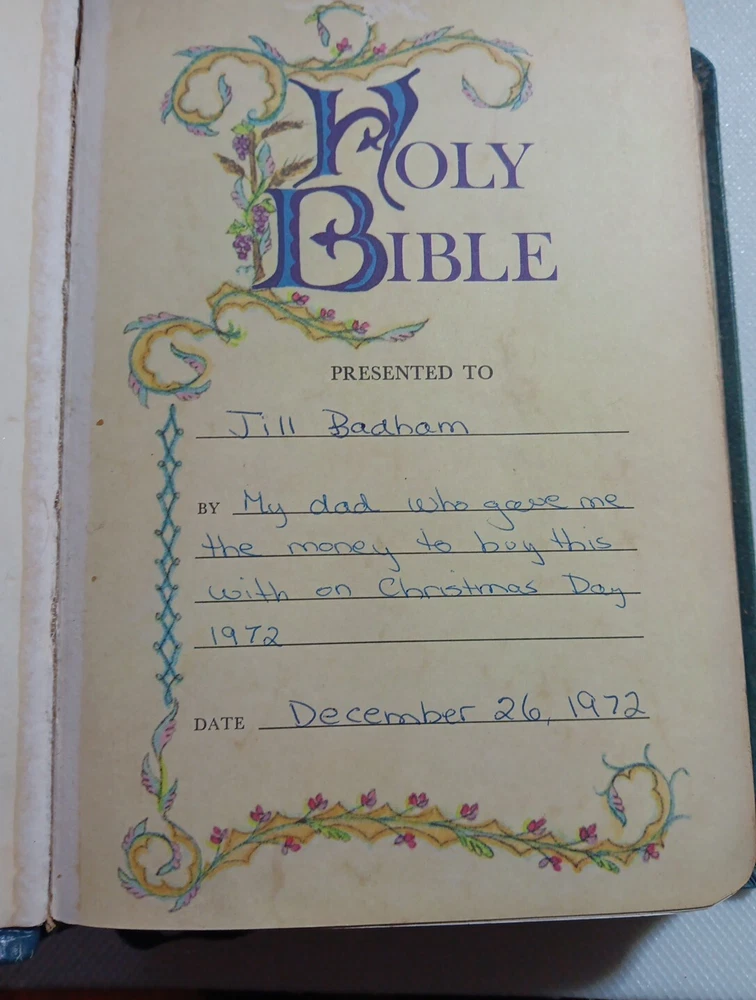 HOLY
BIBLE
PRESENTED TO
Jill Badham
BY My dad who gave me
the money to buy this
with on Christmas Day
1972
DATE December 26, 1972